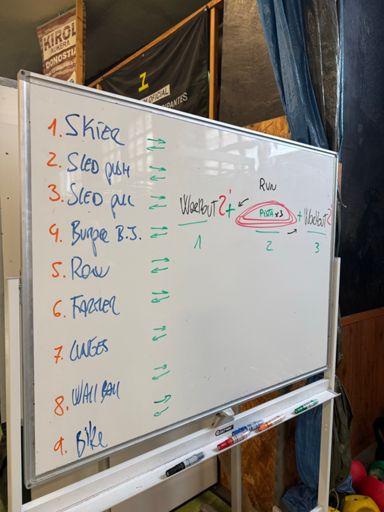 KIROL
DONOSTI
1. Skier
2. SLED push
3. SLED pull
4. Burpee B.J.
5. Row
6. FARMER
7. LUNGES
8. WALL BALL
9. Bike
Run
Workout 2' + PISTA x3 + Workout 2'
1 2 3